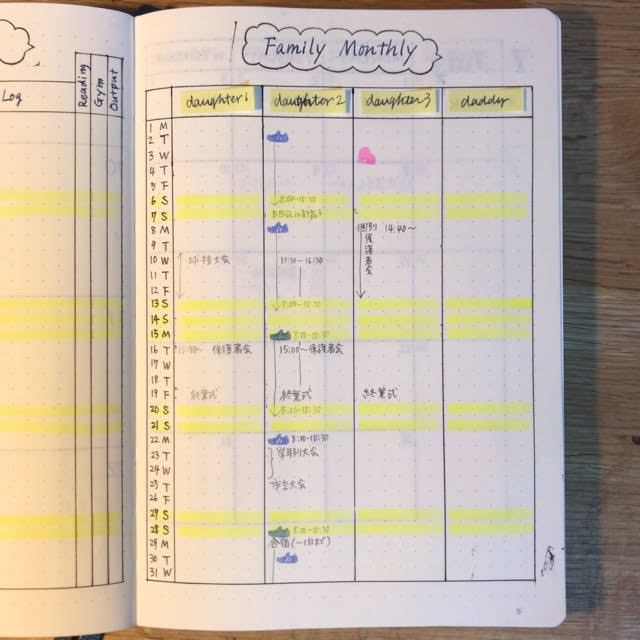 Family Monthly
Log
Reading
Gym
Output
daughter1 daughter2 daughter3 daddy
1 M
2 T
3 W
4 T
5 F
6 S 8:00-10:30
7 S
8 M 個別保護者会 14:40~
9 T
10 W 球技大会 13:30-16:30
11 T
12 F
13 S 7:00-10:30
14 S
15 M 8:00-10:30
16 T 保護者会 15:00~保護者会
17 W
18 T
19 F 終業式 終業式 終業式
20 S 8:00-10:30
21 S
22 M 8:00-10:30
23 T 学年別大会
24 W
25 T 市立大会
26 F
27 S
28 S 8:00-10:30
29 M 合宿(~1日まで)
30 T
31 W